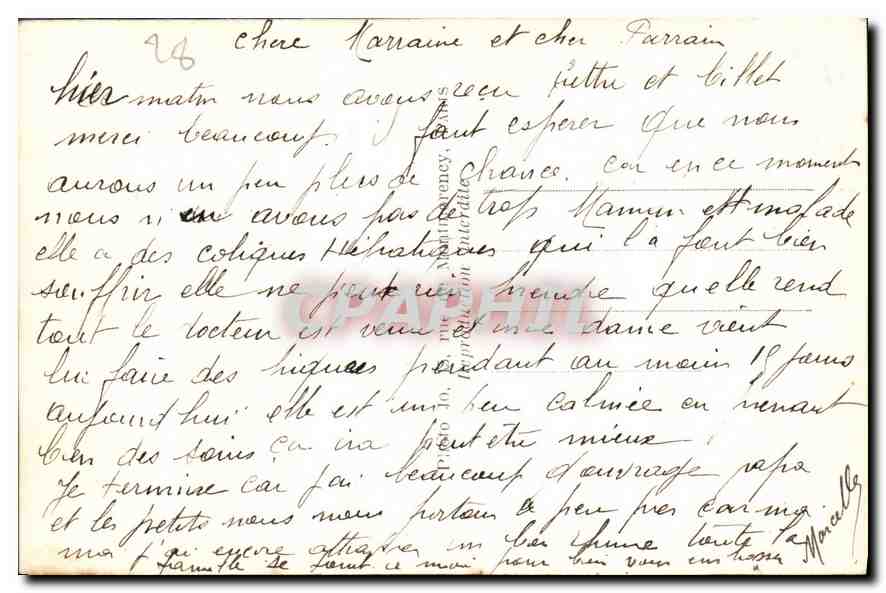 28
Chere Marraine et cher Parrain
hier matin nous avons reçu lettre et billet
merci beaucoup. il faut esperer que nous
aurons un peu plus de chance. car en ce moment
nous n'en avons pas de trop Maman est malade
elle a des coliques Hépatiques qui la font bien
souffrir elle ne peut rien prendre qu'elle rend
tout le docteur est venu et une dame vient
lui faire des piques pendant au moin 15 jours
aujourd'hui elle est un peu calmée en prenant
bien des soins ça ira peut etre mieux.
Je termine car j'ai beaucoup d'ouvrage papa
et les petits nous nous portons a peu pres car
moi j'ai encore attraper un bon rhume toute la
famille se joint a moi pour bien vous embrasser
Marcelle
Photo Jo, rue Montmorency, PARIS
Reproduction interdite
CPAPHIL